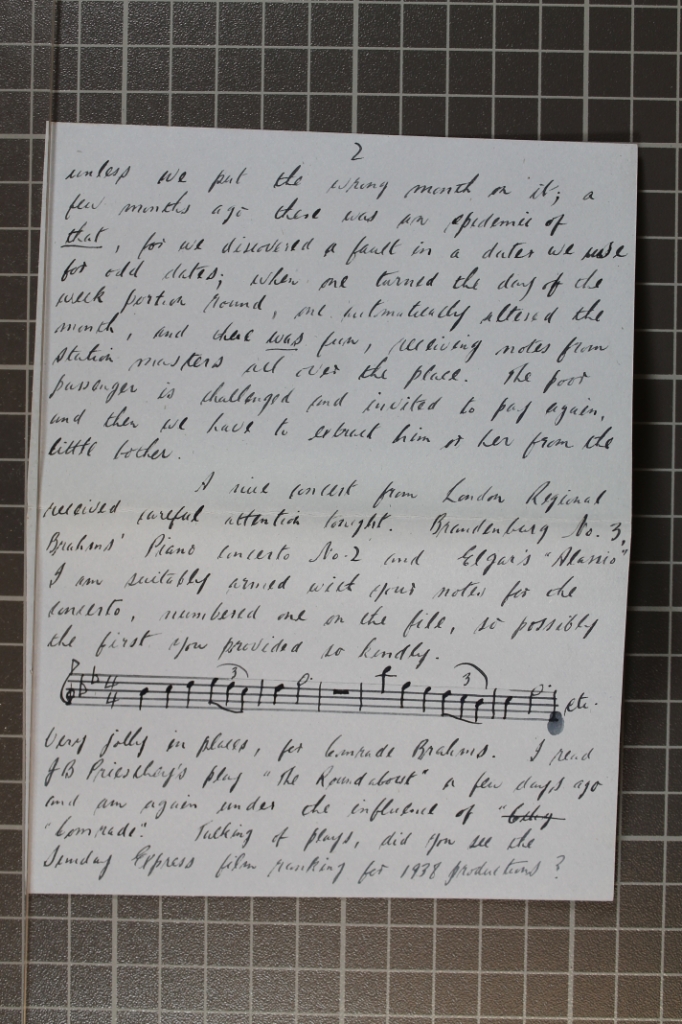 2
unless we put the wrong month on it; a
few months ago there was an epidemic of
that, for we discovered a fault in a dater we use
for odd dates; when one turned the day of the
week portion round, one automatically altered the
month, and there was fun, receiving notes from
station masters all over the place. The poor
passenger is challenged and invited to pay again,
and then we have to extract him or her from the
little bother.
A nice concert from London Regional
received careful attention tonight. Brandenburg No. 3,
Brahms' Piano concerto No. 2 and Elgar's "Alassio"
I am suitably armed with your notes for the
concerto, numbered one on the file, so possibly
the first you provided so kindly.
4 4 3 3 etc.
Very jolly in places, for Comrade Brahms. I read
JB Priestley's play "The Roundabout" a few days ago
and am again under the influence of
"Comrade". Talking of plays, did you see the
Sunday Express film ranking for 1938 productions?